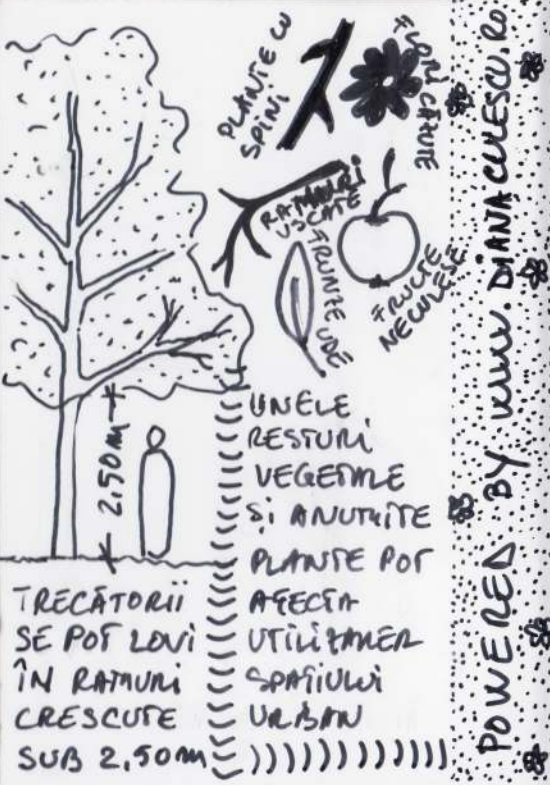 PLANTE CU
SPINI
FLORI CĂZUTE
RAMURI
USCATE
FRUNZE UDE
FRUCTE
NECULESE
2,50 m
UNELE
RESTURI
VEGETALE
ȘI ANUMITE
PLANTE POT
AFECTA
UTILIZAREA
SPAȚIULUI
URBAN
TRECĂTORII
SE POT LOVI
ÎN RAMURI
CRESCUTE
SUB 2,50 m
POWERED BY www.DIANACULESCU.RO